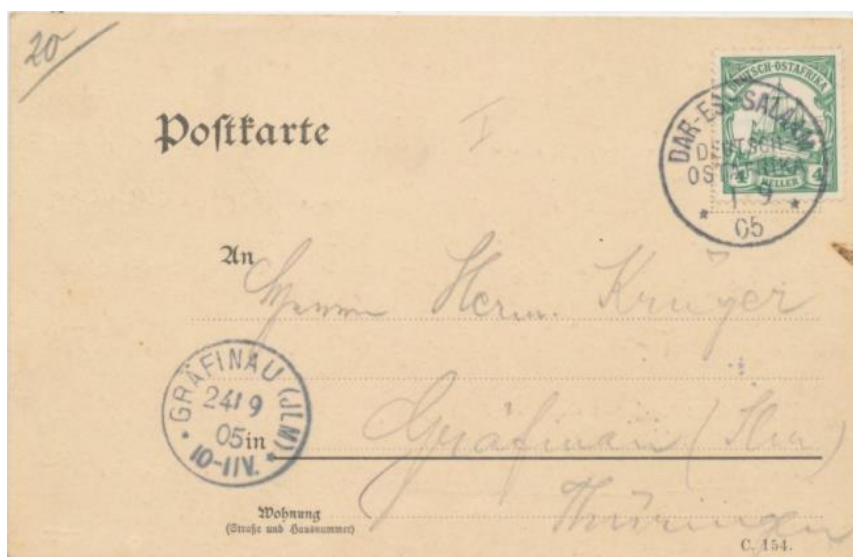 20
Postkarte
DEUTSCH-OSTAFRIKA
4 HELLER 4
DAR-ES-SALAAM
DEUTSCH-
OSTAFRIKA
1 9
05
An
Herrn Herm. Krüger
GRÄFINAU (JLM)
24 9
05
10-11V.
in
Gräfinau (Ilm)
Thüringen
Wohnung
(Straße und Hausnummer)
C. 154.